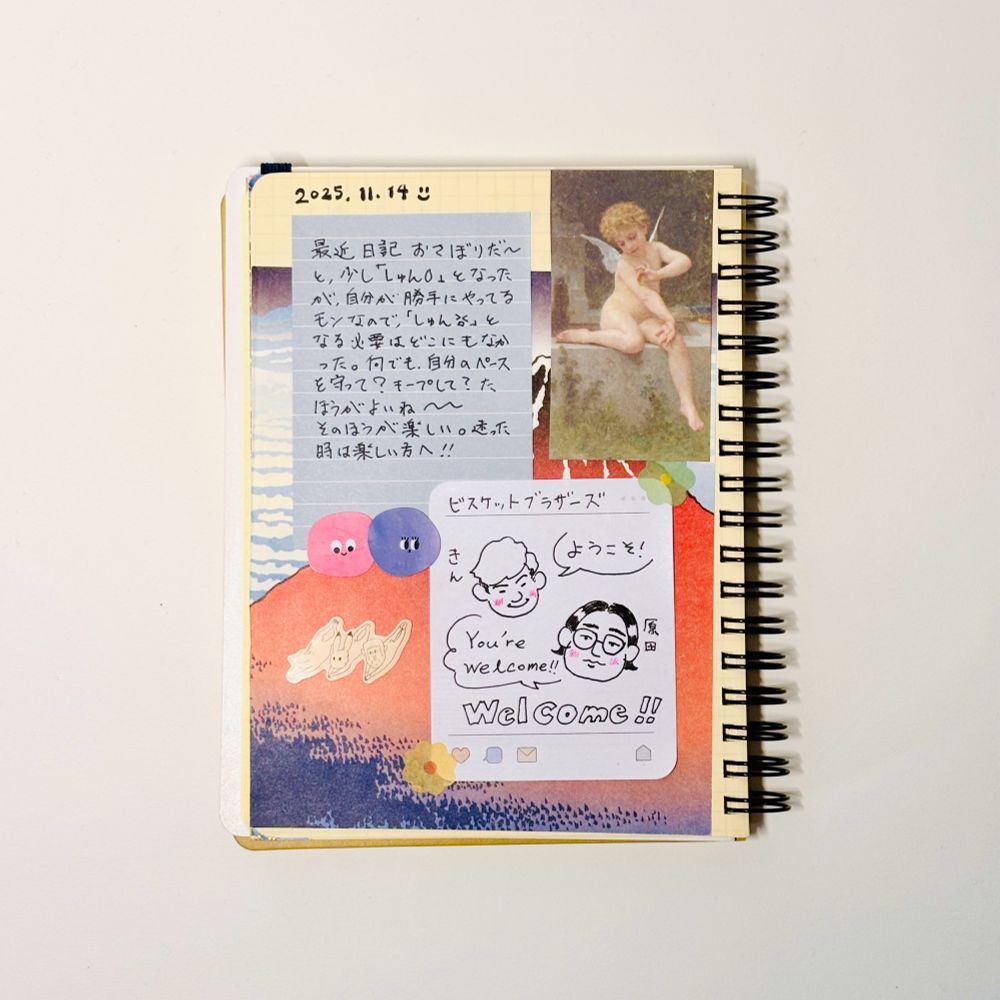 2025.11.14
最近 日記 おさぼりだ〜
と、少し「しゅん」となった
が、自分が勝手にやってる
モンなので、「しゅん」と
なる必要はどこにもなか
った。何でも、自分のペース
を守って？キープして？た
ほうがよいね〜〜
そのほうが楽しい。迷った
時は楽しい方へ!!
ビスケットブラザーズ
きん
ようこそ!
原田
You're
welcome!!
Welcome!!